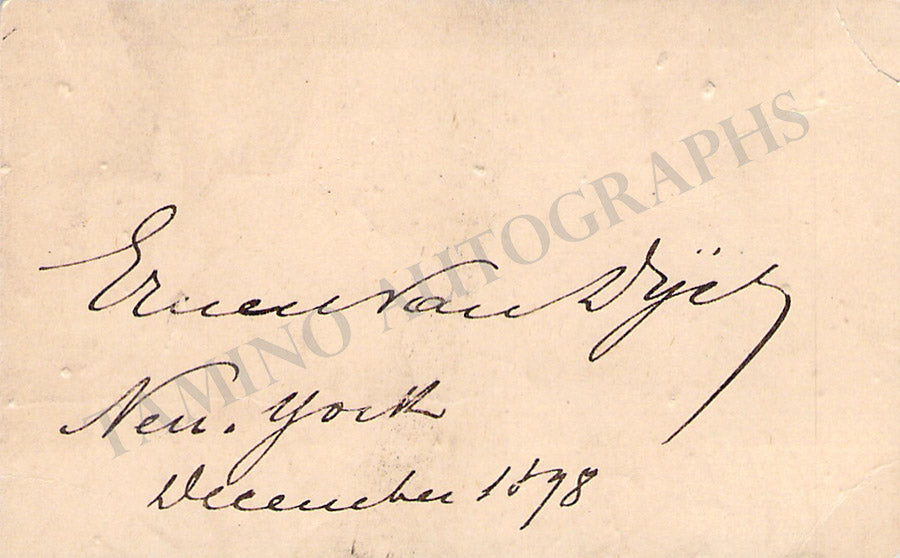 Ernest Van Dÿck
New. York
December 1898
TAMINO AUTOGRAPHS